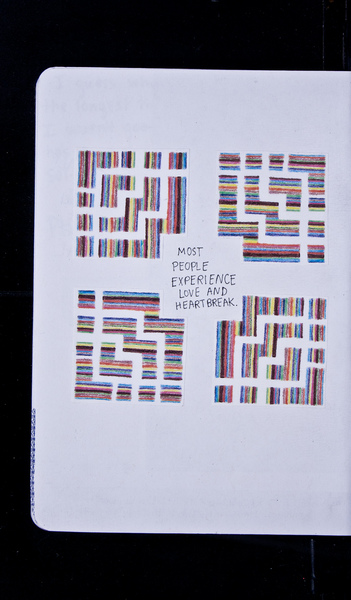 MOST
PEOPLE
EXPERIENCE
LOVE AND
HEARTBREAK.